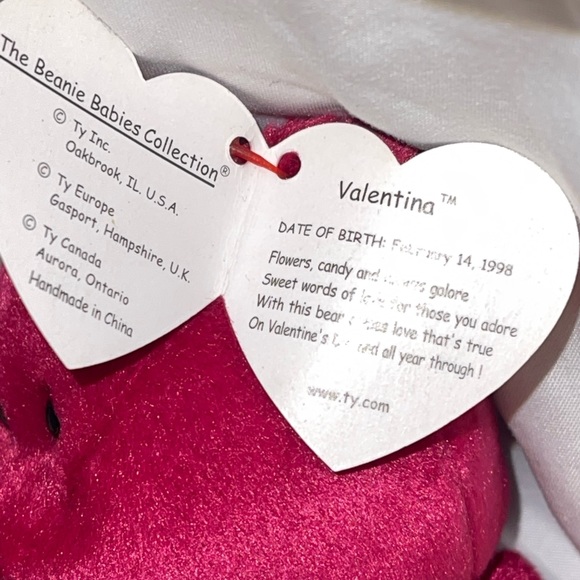 The Beanie Babies Collection®
© Ty Inc.
Oakbrook, IL. U.S.A.
© Ty Europe
Gasport, Hampshire, U.K.
© Ty Canada
Aurora, Ontario
Handmade in China
Valentina™
DATE OF BIRTH: February 14, 1998
Flowers, candy and galore
Sweet words of love for those you adore
With this bear love that's true
On Valentine's and all year through !
www.ty.com